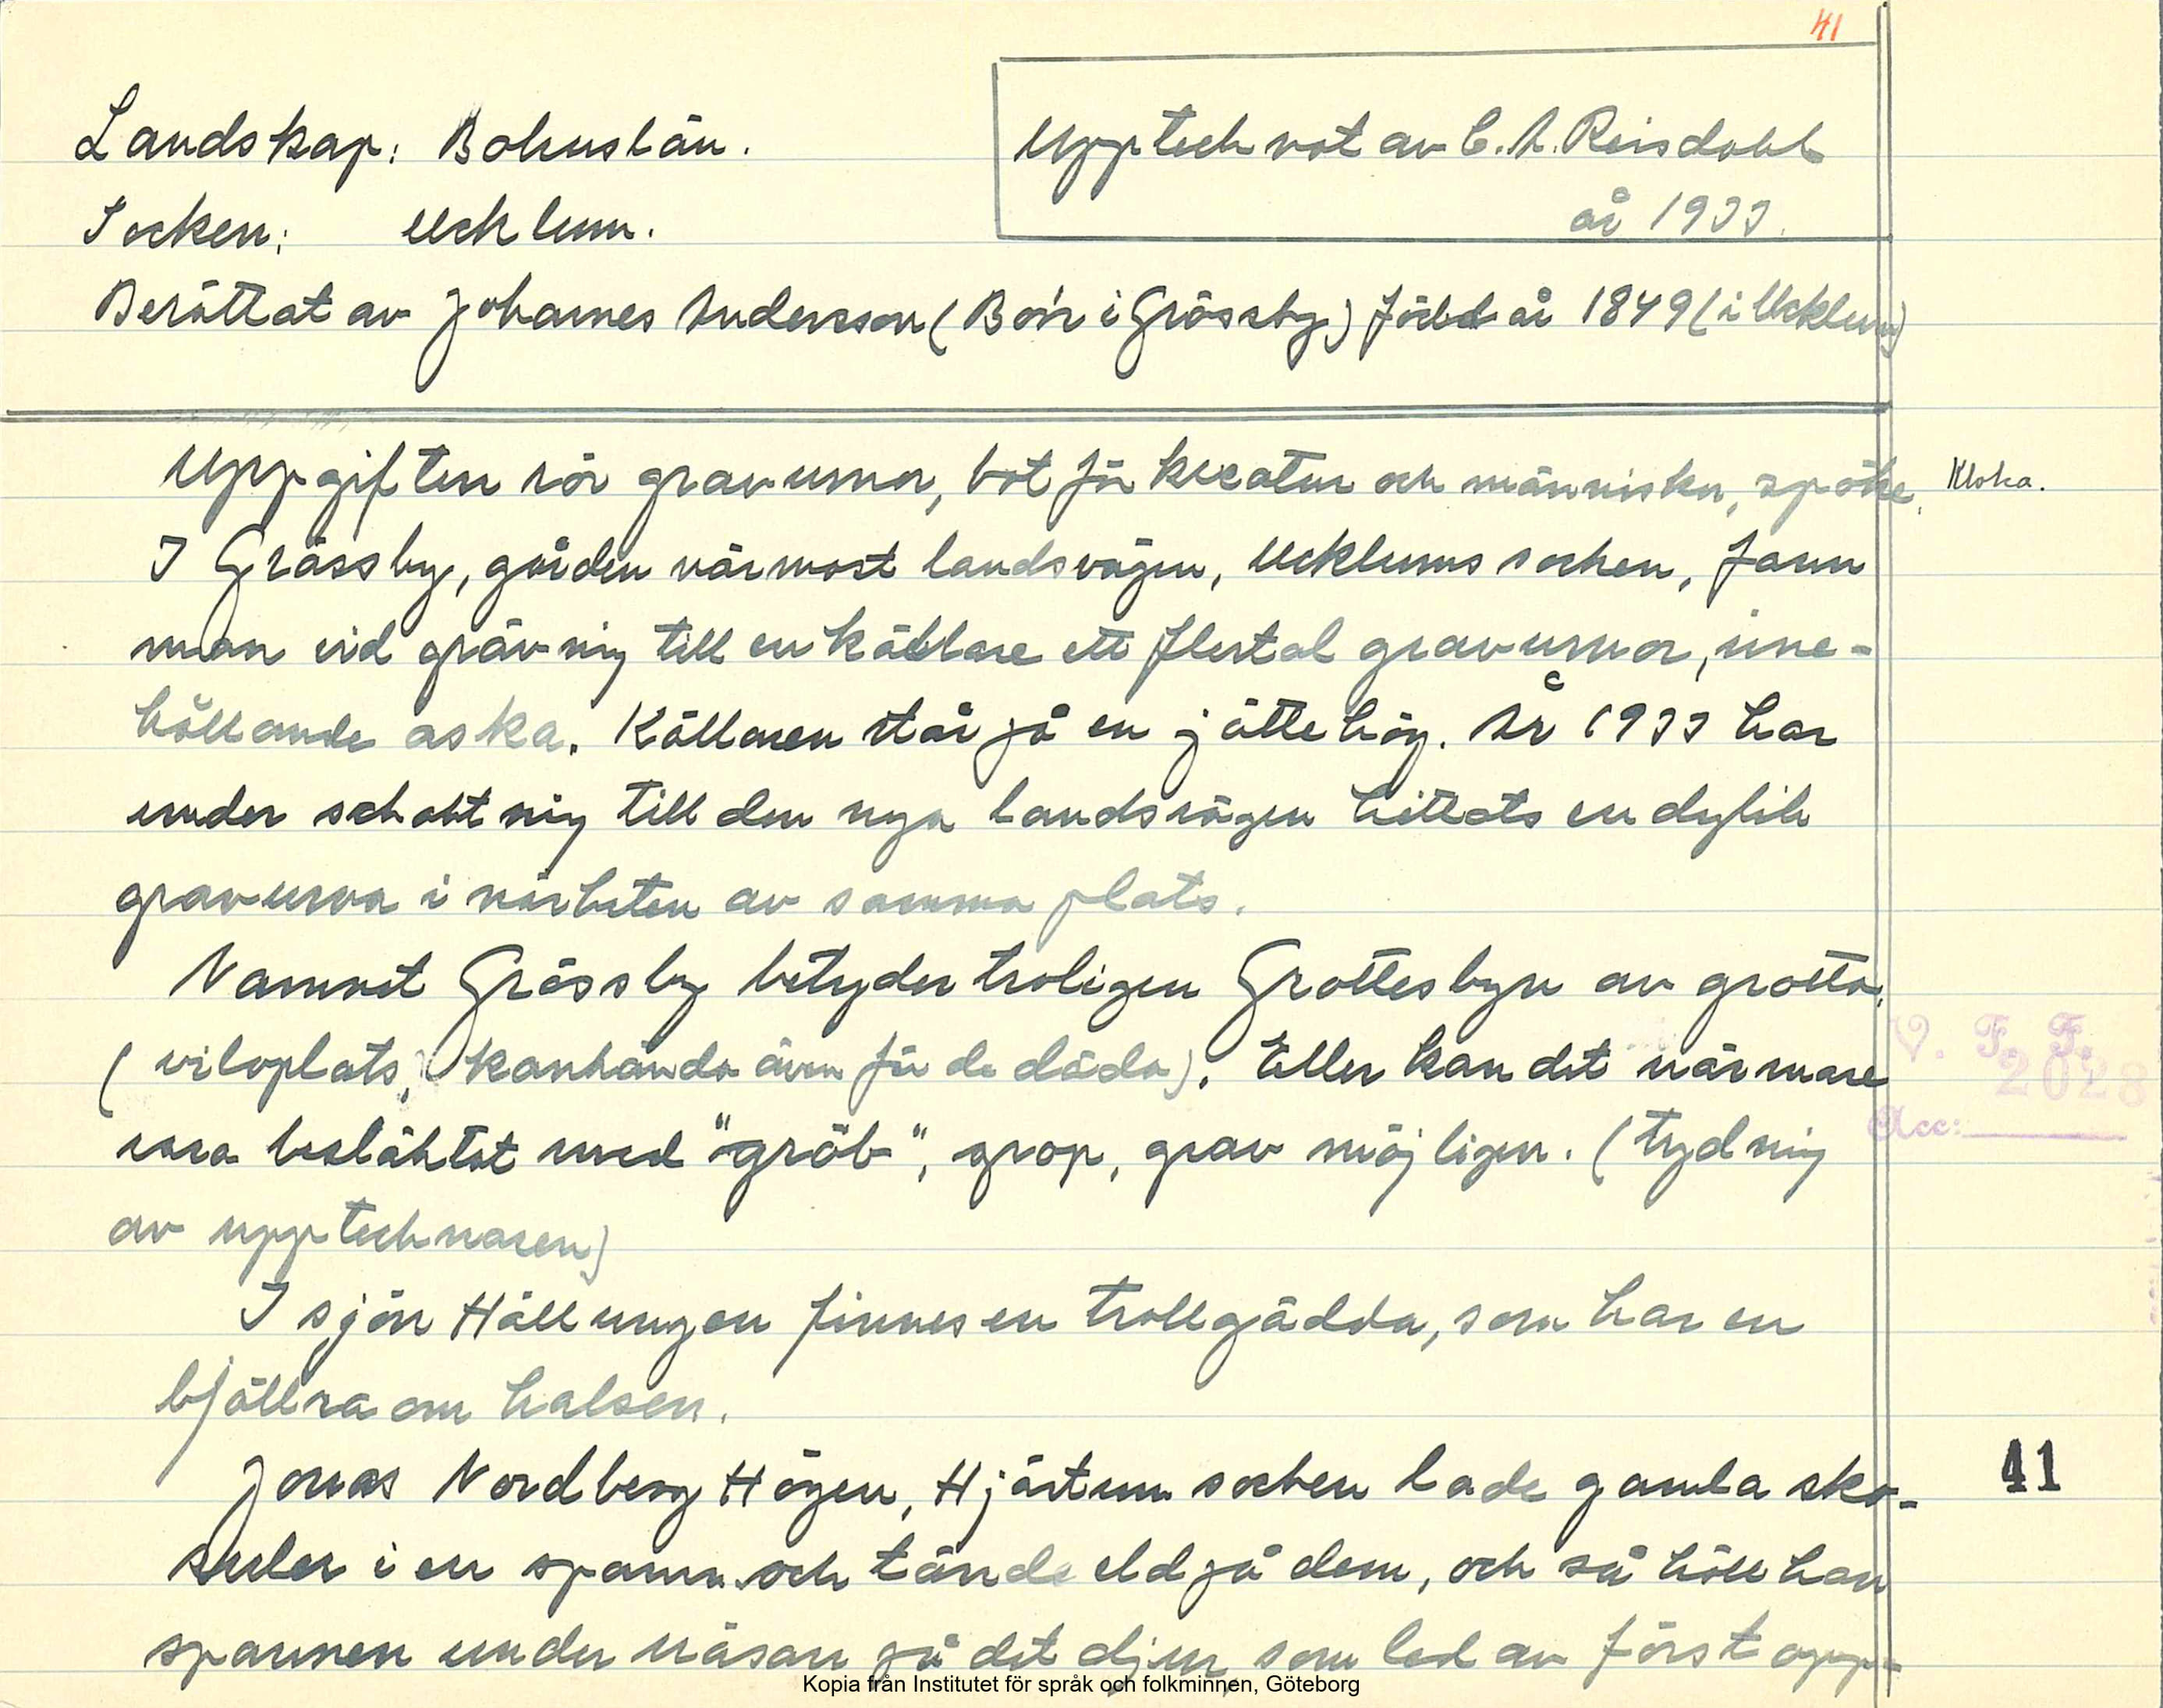 41
Landskap: Bohuslän.
Upptecknat av C. A. Reisdahl
år 1933.
Socken: Ucklum.
Berättat av Johannes Andersson (Bor i Grössby) född år 1849 (i Ucklum)
Uppgiften rör gravurnor, bot för kreatur och människor, spöke.
Kloka.
I Grössby, gården närmast landsvägen, Ucklums socken, fann
man vid grävning till en källare ett flertal gravurnor, inne-
hållande aska. Källaren står på en jättehög. År 1933 har
under schaktning till den nya landsvägen hittats en dylik
gravurna i närheten av samma plats.
Namnet Grössby betyder troligen Grottesbyn av grotta,
(viloplats, kanhända även för de döda). Eller kan det närmare
vara besläktat med "gröb", grop, grav möjligen. (tydning
av upptecknaren)
V. F. F.
2028
Acc:
I sjön Hällungen finnes en trollgädda, som har en
bjällra om halsen.
Jonas Nordberg Högen, Hjärtum socken lade gamla sko-
41
sulor i en spann och tände eld på dem, och så höll han
spannen under näsan på det djur, som led av förstopp-
Kopia från Institutet för språk och folkminnen, Göteborg